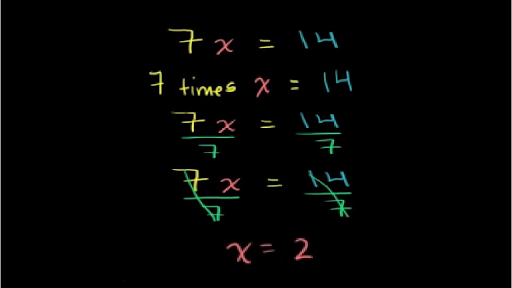 7x = 14
7 times x = 14
7x/7 = 14/7
7x/7 = 14/7
x = 2